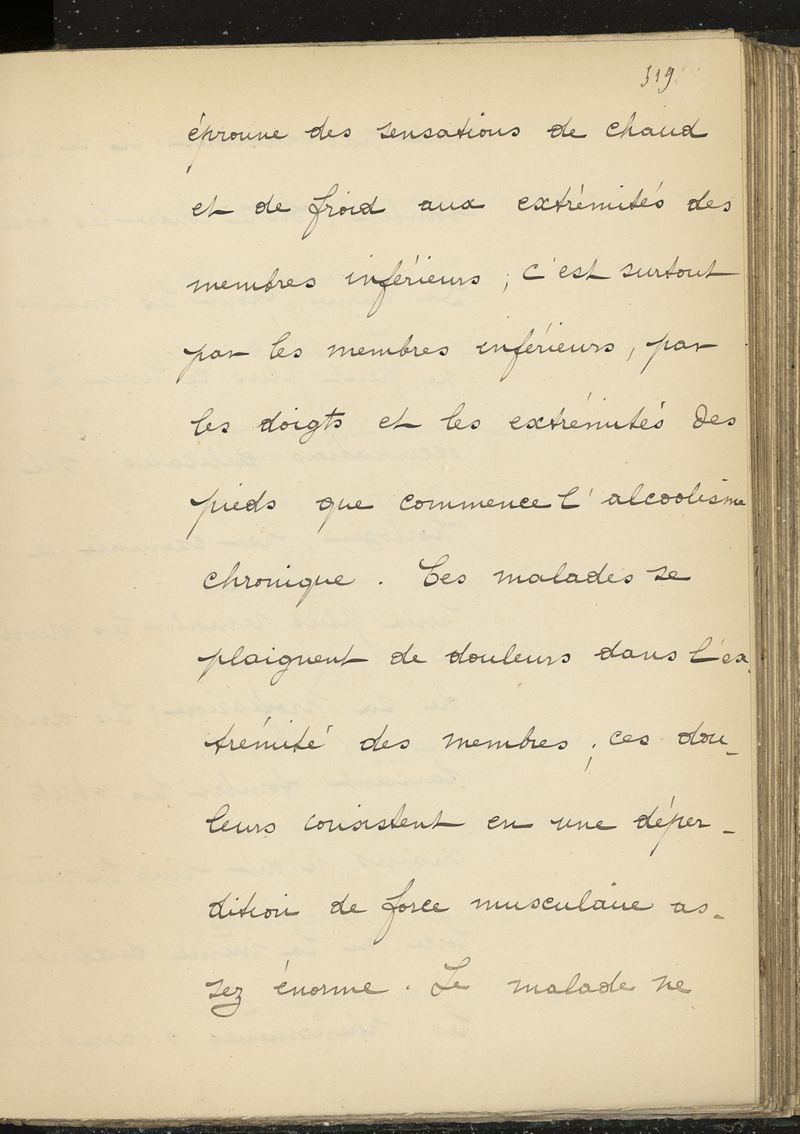 319
éprouve des sensations de chaud
et de froid aux extrémités des
membres inférieurs ; c'est surtout
par les membres inférieurs, par
les doigts et les extrémités des
pieds que commence l'alcoolisme
chronique. Ces malades se
plaignent de douleurs dans l'ex-
trémité des membres ; ces dou-
leurs consistent en une déper-
dition de force musculaire as-
sez énorme. Le malade ne